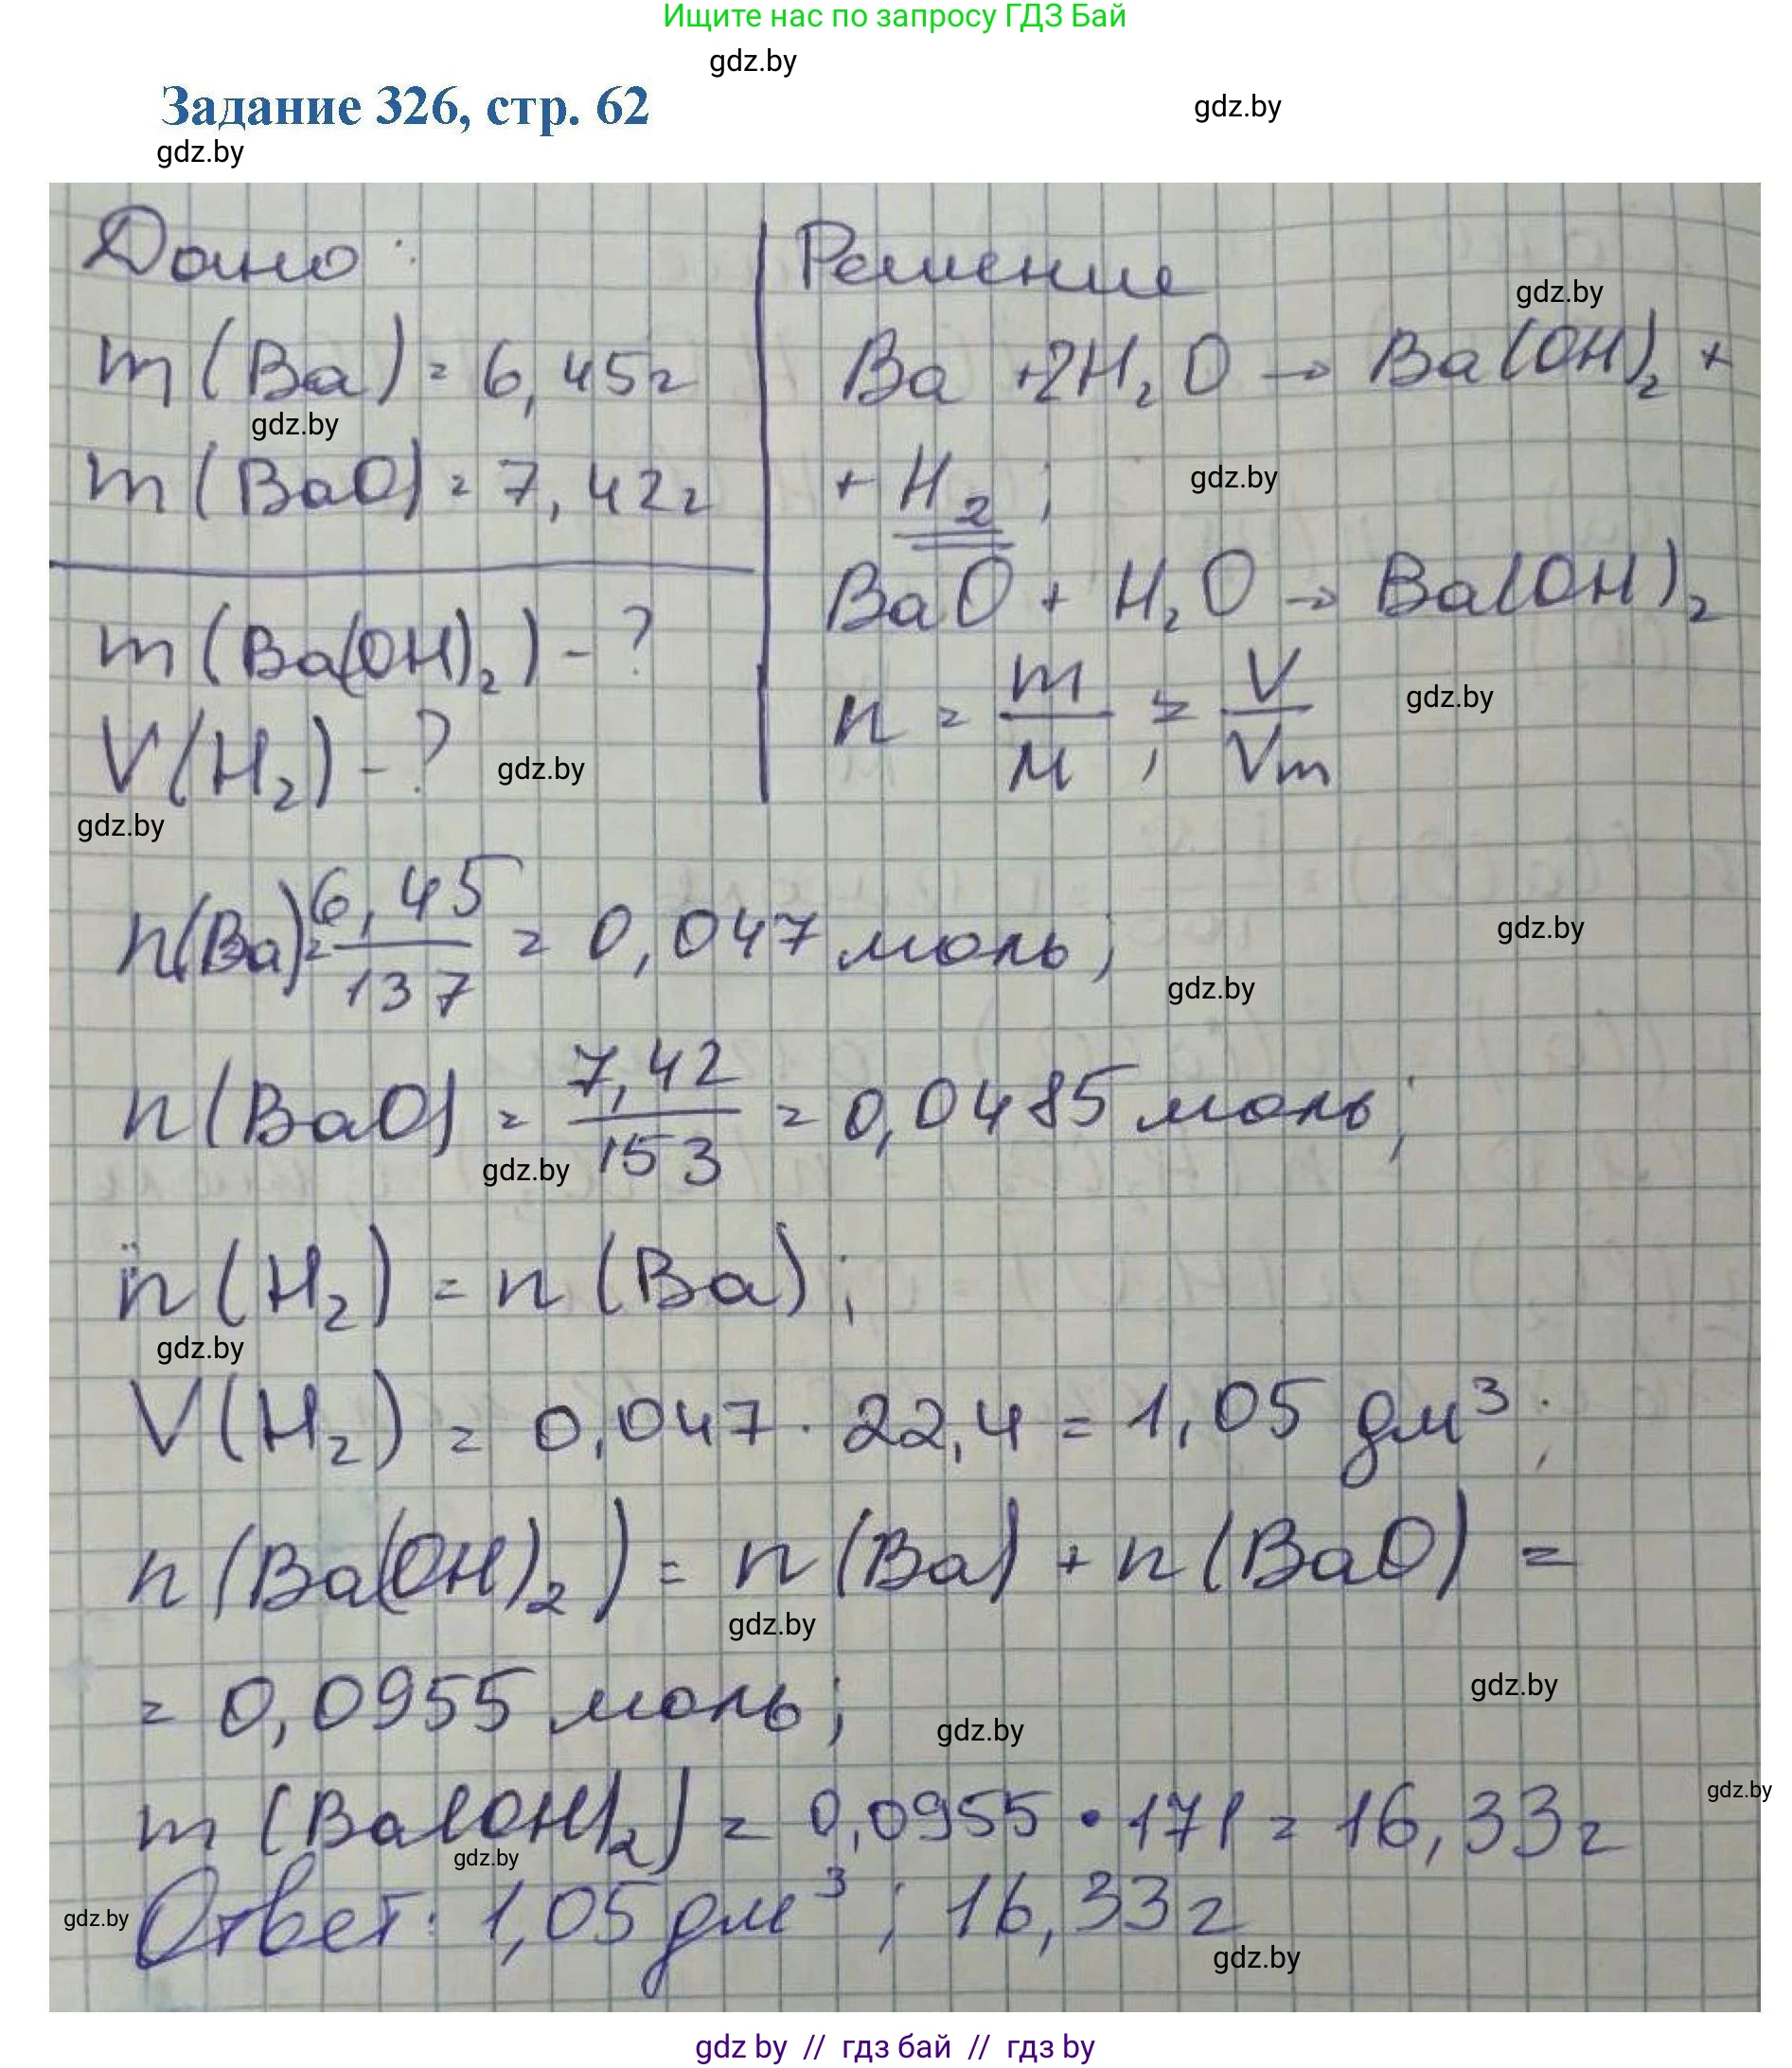 Ищите нас по запросу ГДЗ Бай
gdz.by
Задание 326, стр. 62
gdz.by
gdz.by
Дано:
m(Ba) = 6,45г
gdz.by
m(BaO) = 7,42г
m(Ba(OH)₂) - ?
V(H₂) - ?
gdz.by
gdz.by
Решение
gdz.by
Ba + 2H₂O → Ba(OH)₂ +
+ H₂ ;
gdz.by
BaO + H₂O → Ba(OH)₂
n = m/M ; = V/Vm
gdz.by
n(Ba) = 6,45/137 = 0,047 моль;
gdz.by
gdz.by
n(BaO) = 7,42/153 = 0,0485 моль;
gdz.by
n(H₂) = n(Ba);
gdz.by
V(H₂) = 0,047 · 22,4 = 1,05 дм³;
n(Ba(OH)₂) = n(Ba) + n(BaO) =
gdz.by
= 0,0955 моль;
gdz.by
gdz.by
m(Ba(OH)₂) = 0,0955 · 171 = 16,33г
gdz.by
gdz.by
Ответ: 1,05 дм³; 16,33г
gdz.by
gdz.by
gdz by // гдз бай // гдз by